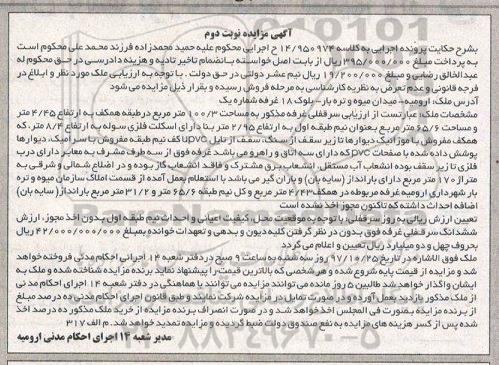 آگهی مزایده نوبت دوم
بشرح حکایت پرونده اجرایی به کلاسه ۹۵۰۹۷۴/۱۴ ح اجرایی محکوم علیه حمید محمدزاده فرزند محمد علی محکوم است
به پرداخت مبلغ ۳۹۵/۰۰۰/۰۰۰ ریال از بابت اصل خواسته بانضمام تاخیر تادیه و هزینه دادرسی در حق محکوم له
عبدالخالق رضایی و مبلغ ۱۹/۲۰۰/۰۰۰ ریال نیم عشر دولتی در حق دولت . با توجه به ارزیابی ملک مورد نظر و ابلاغ در
فرجه قانونی و عدم تعرض به نظریه کارشناسی به مرحله فروش رسیده و بقرار ذیل مزایده می شود
آدرس ملک: ارومیه- میدان میوه و تره بار- بلوک ۱۸ غرفه شماره یک
مشخصات ملک: عبارتست از ارزیابی سرقفلی غرفه مذکور به مساحت ۱۰۰/۳ متر مربع در طبقه همکف به ارتفاع ۴/۴۵ متر
و مساحت ۶۵/۶ متر مربع بعنوان نیم طبقه اول به ارتفاع ۲/۹۵ متر بنا دارای اسکلت فلزی سوله به ارتفاع ۸/۴ متر، کف
همکف مفروش با موزائیک دیوار ها تا زیر سقف از سنگ، سقف از تایل pvc با کف نیم طبقه مفروش با سرامیک، دیوارها
پوشش داده شده با صفحات pvc که دارای سه اتاق و راهرو می باشد غرفه فوق از سه طرف مشرف به معابر دارای درب
فلزی تا زیر سقف بوده انشعاب آب مستقل، انشعاب برق مشترک و فاقد انشعاب گاز بوده و در اضلاع شمالی و شرقی به
متراژ ۱۷۰ متر مربع دارای بارانداز (سایه بان) و بارانگیر می باشد با استعلام بعمل آمده از قسمت املاک سازمان میوه و تره
بار شهرداری ارومیه غرفه مربوطه در همکف ۴/۴۳ متر مربع و کل نیم طبقه ۶۵/۶ متر مربع و ۳۱/۲ متر مربع بارانداز (سایه بان)
اضافه احداث داشته که تاکنون مجوز اخذ نشده است
تعیین ارزش ریالی به روز سرقفلی: با توجه به موقعیت محل، کیفیت اعیانی و احداث نیم طبقه اول بدون اخذ مجوز، ارزش
ششدانگ سرقفلی غرفه فوق بدون در نظر گرفتن کلیه دیون و بدهی و تعهدات خوانده بمبلغ ۴۲/۰۰۰/۰۰۰/۰۰۰ ریال
بحروف چهل و دو میلیارد ریال تعیین و اعلام می گردد
ملک فوق الاشاره در تاریخ ۹۷/۱۰/۲۵ روز سه شنبه به ساعت ۹ صبح در دفتر شعبه ۱۴ اجرائی احکام مدنی فروخته خواهد
شد و مزایده از قیمت پایه شروع شده و هر شخصی که بالاترین قیمت را پیشنهاد نماید برنده مزایده شناخته شده و ملک به
ایشان واگذار خواهد شد طالبین ۵ روز مانده می توانند مزایده می توانند با هماهنگی در دفتر شعبه ۱۴ اجرای احکام مدنی
از ملک مذکور بازدید بعمل آورده و در صورت تمایل در مزایده شرکت نمایند و طبق قانون اجرای احکام مدنی ده درصد مبلغ
از برنده مزایده بصورت فی المجلس اخذ خواهد شد و در صورت انصراف برنده مزایده از خرید ملک مذکور ده درصد اخذ
شده پس از کسر هزینه های مزایده به نفع صندوق دولت ضبط گردیده و مزایده تمدید خواهد شد. م الف ۳۱۷
مدیر شعبه ۱۴ اجرای احکام مدنی ارومیه